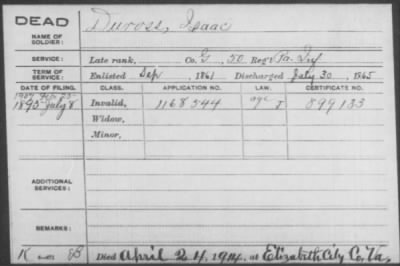 DEAD
NAME OF SOLDIER: Duross, Isaac
SERVICE: Late rank, Co. G, 50 Reg't Pa. Inf
TERM OF SERVICE: Enlisted Sep , 1861 Discharged July 30 , 1865
DATE OF FILING. CLASS. APPLICATION NO. LAW. CERTIFICATE NO.
1907 Feb 25
1895 July 8 Invalid, 1168544 899133
Widow,
Minor,
ADDITIONAL SERVICES:
REMARKS:
K Died April 24, 1914, at Elizabeth City Co., Va.